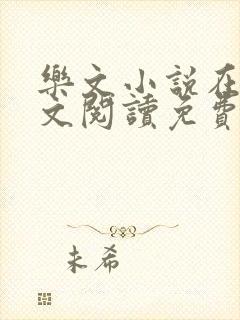 樂文小說在
文閱讀免費
未希